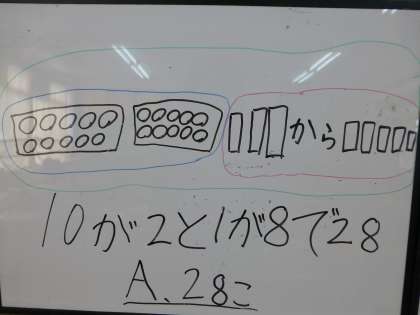 から
10が2と1が8で28
A、28こ